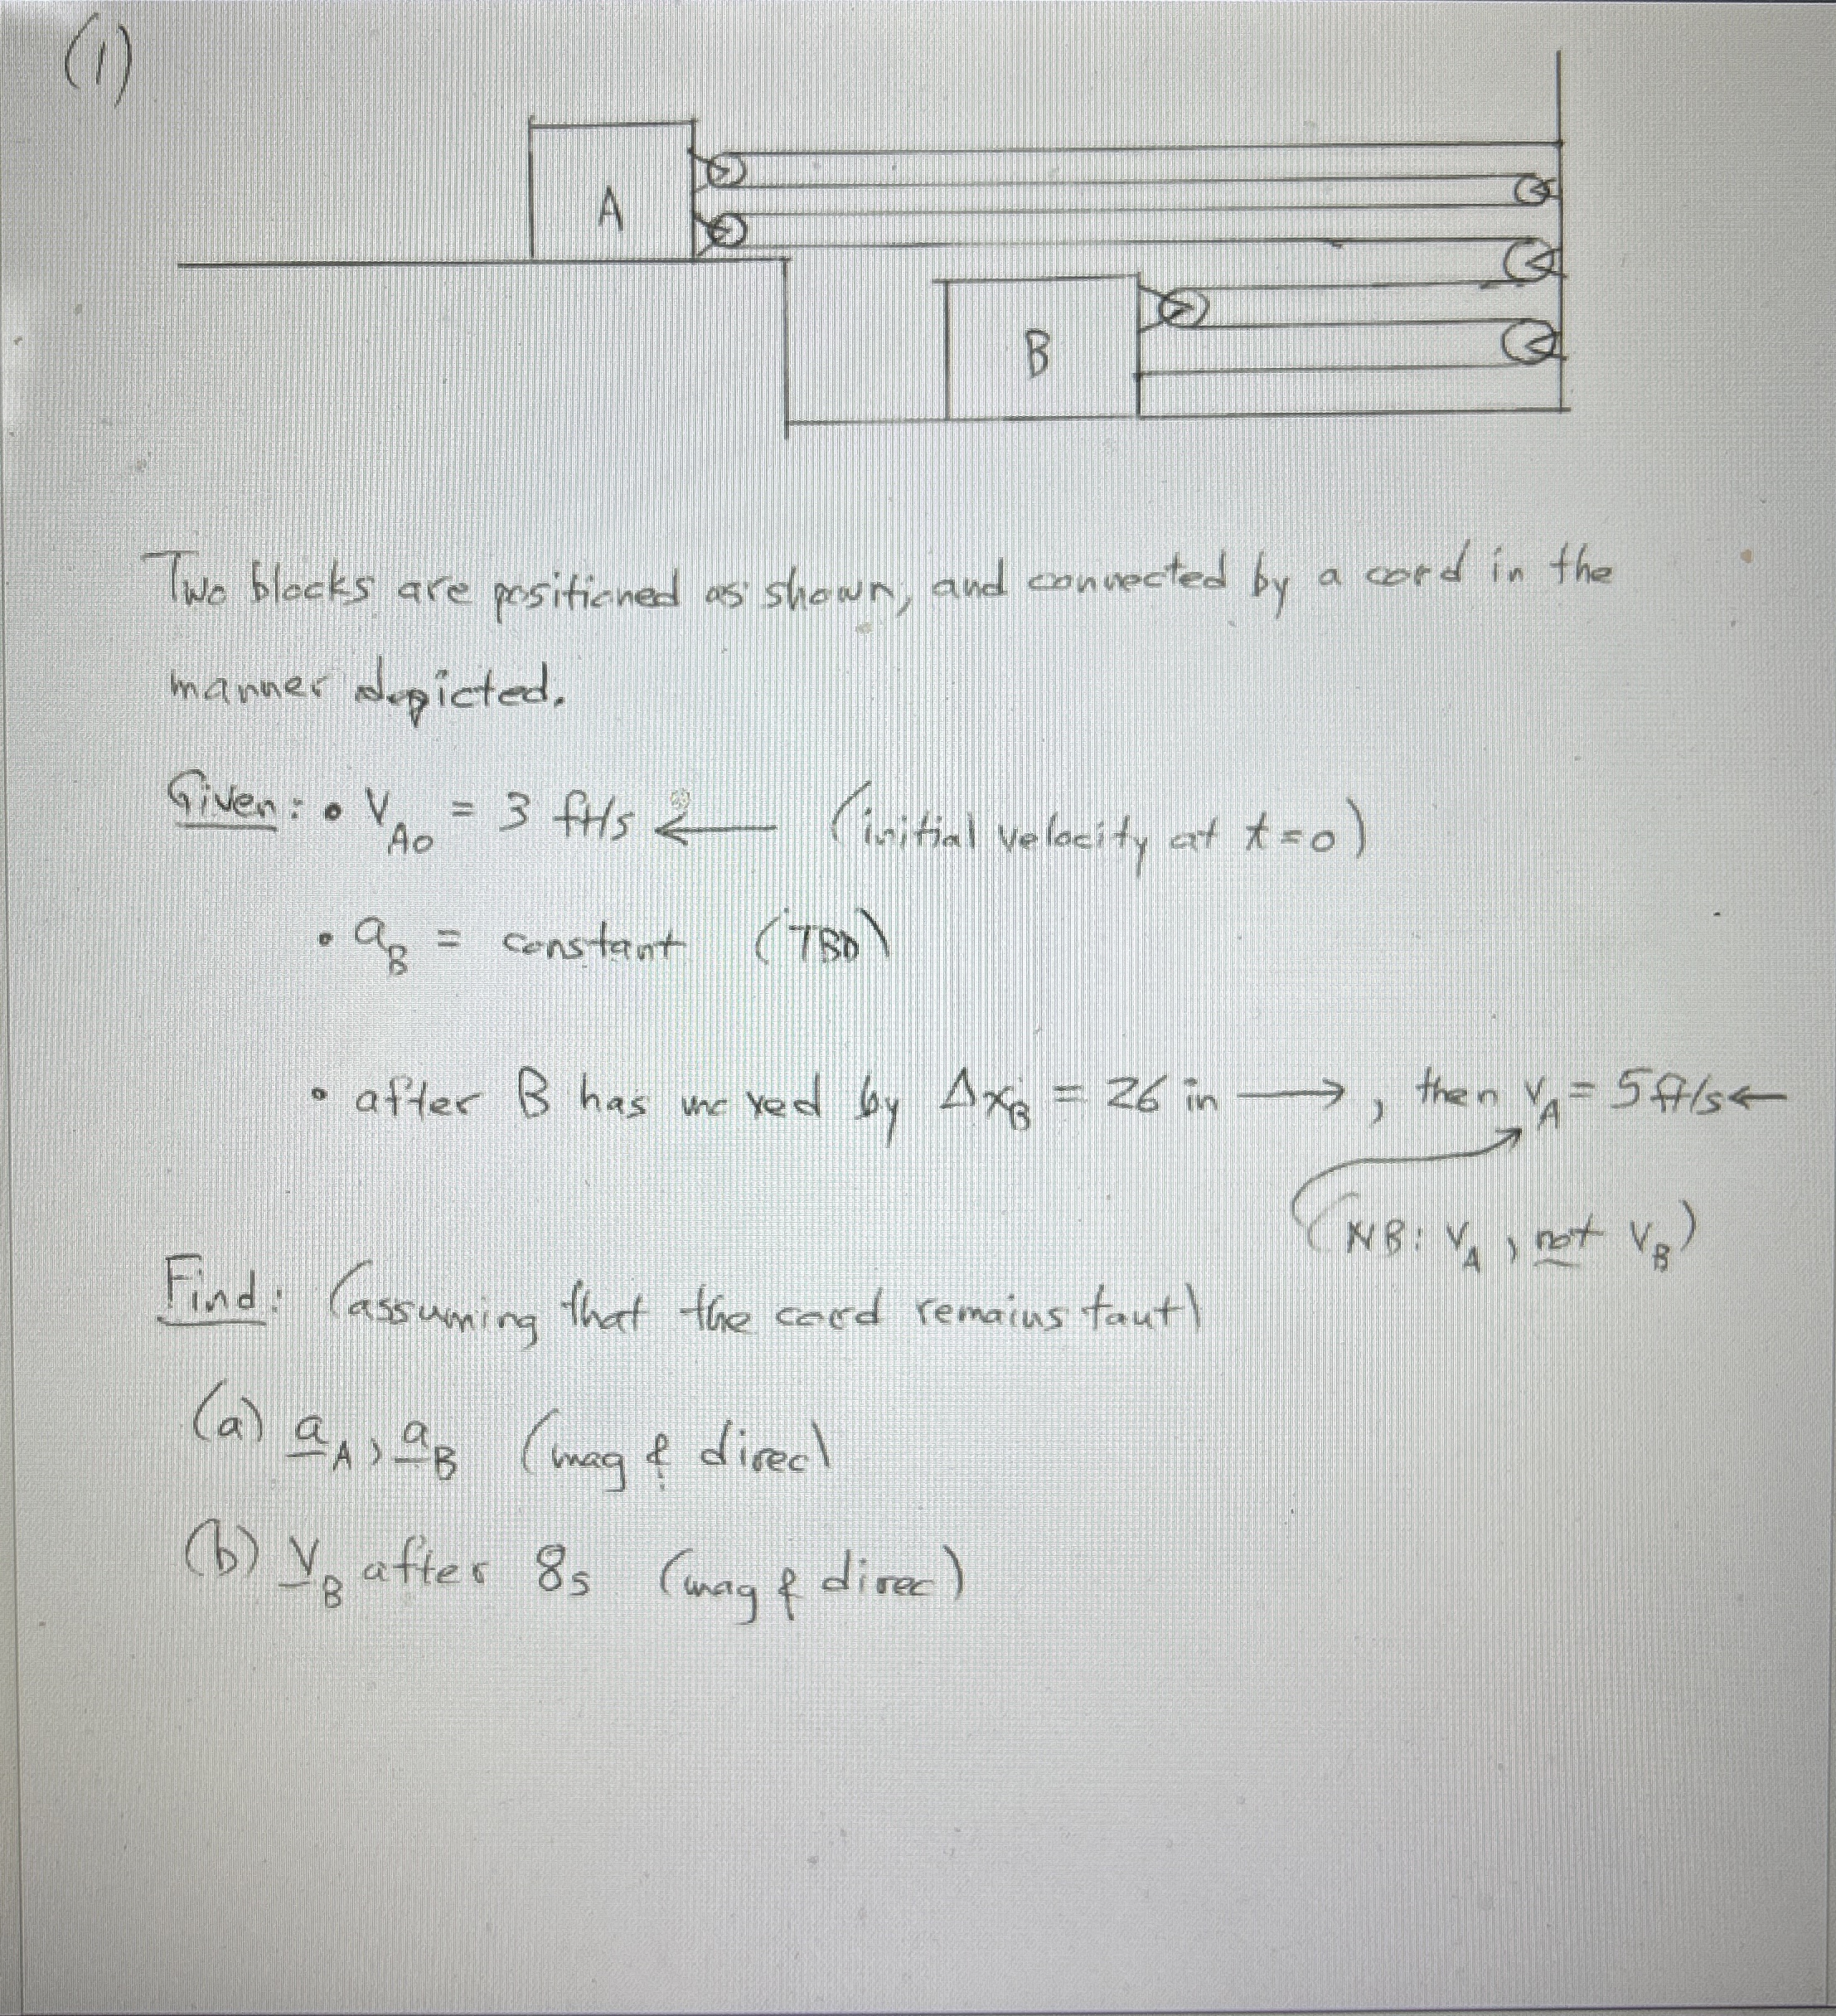 (1)
A
B
Two blocks are positioned as shown, and connected by a cord in the
manner depicted.
Given: • V_A0 = 3 ft/s ← (initial velocity at t=0)
• a_B = constant (TBD)
• after B has moved by Δx_B = 26 in →, then v_A = 5 ft/s ←
(NB: V_A, not V_B)
Find: (assuming that the cord remains taut)
(a) a_A, a_B (mag & direc)
(b) V_B after 8s (mag & direc)